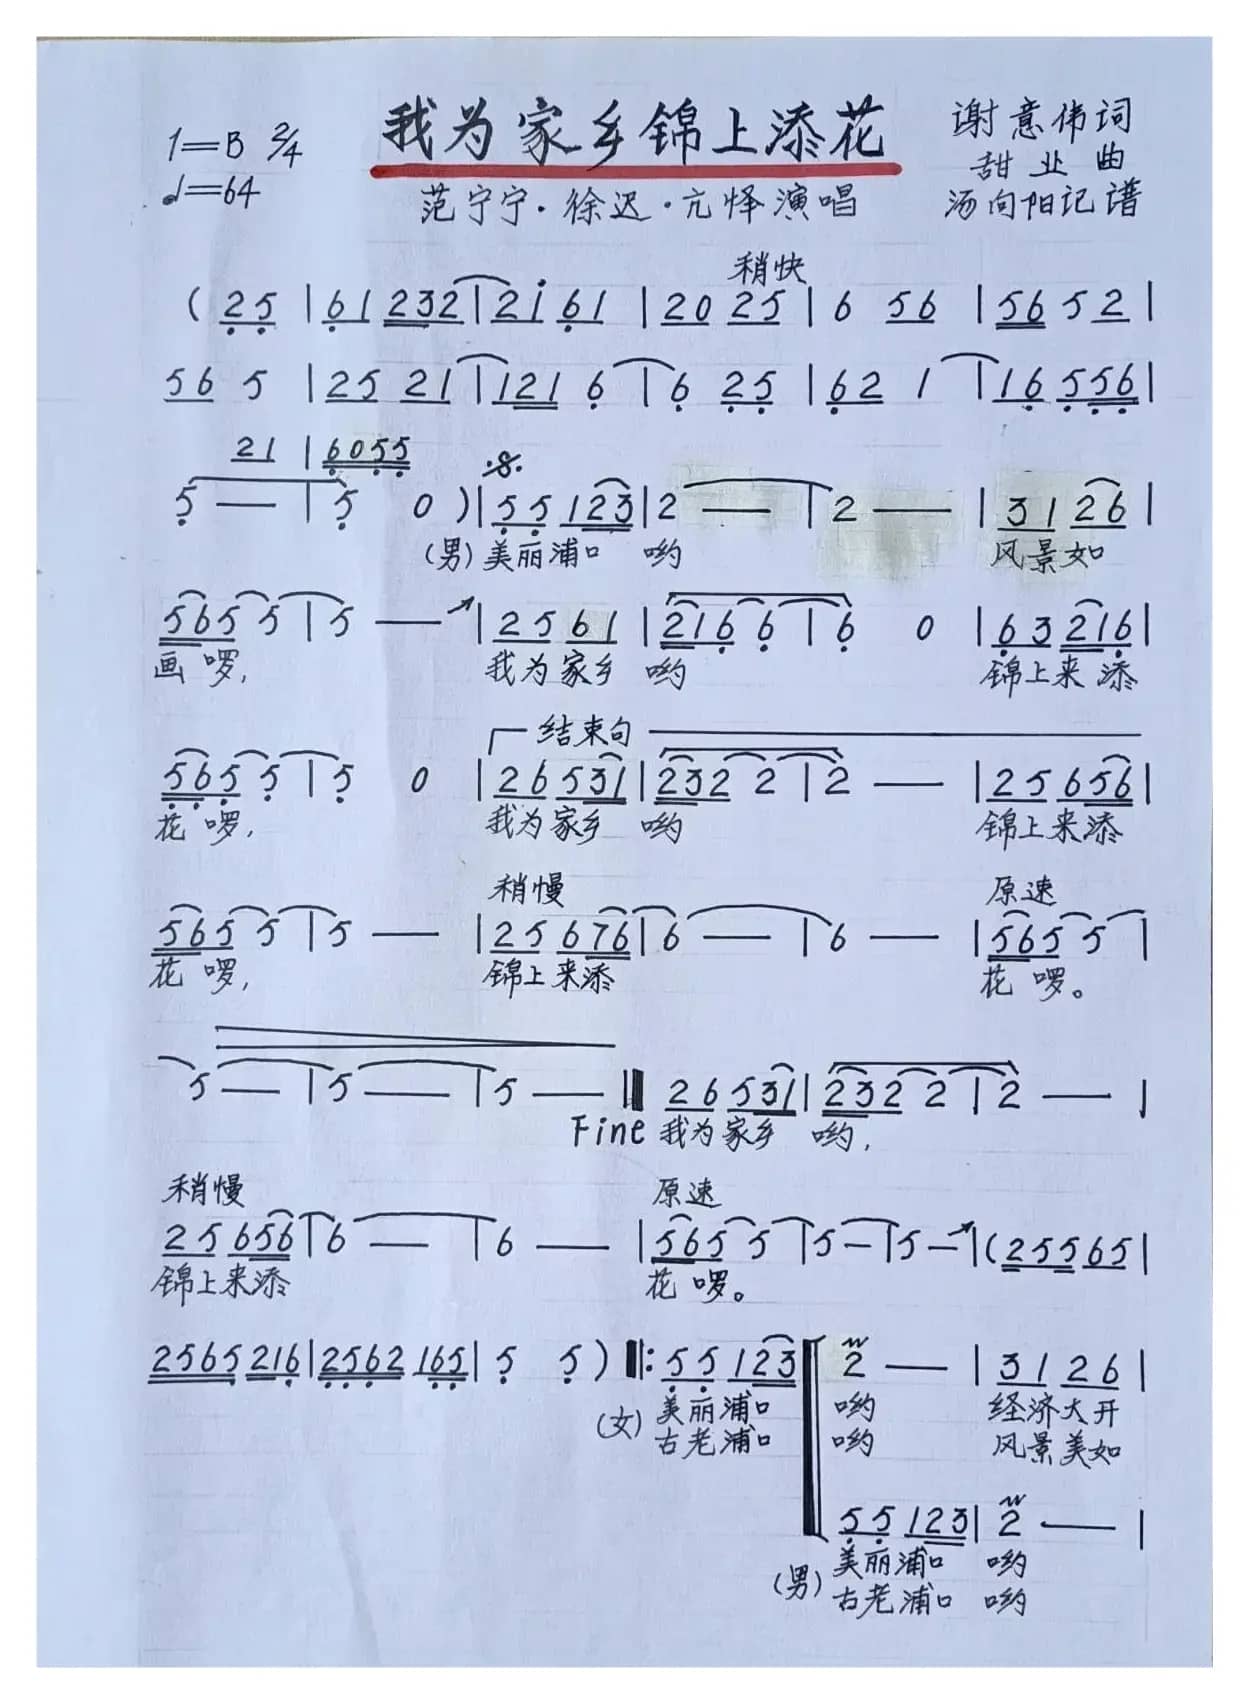 1=B 2/4
♩=64
我为家乡锦上添花
范宁宁·徐迟·亢怿演唱
谢意伟词
甜业曲
汤向阳记谱
稍快
( 2 5 | 6 1 2 3 2 | 2 i 6 1 | 2 0 2 5 | 6 5 6 | 5 6 5 2 |
5 6 5 | 2 5 2 1 | 1 2 1 6 | 6 2 5 | 6 2 1 | 1 6 5 5 6 |
2 1 | 6 0 5 5
5 — | 5 0 ) | 5 5 1 2 3 | 2 — | 2 — | 3 1 2 6 |
(男) 美丽浦口 哟 风景如
5 6 5 5 | 5 — | 2 5 6 1 | 2 1 6 6 | 6 0 | 6 3 2 1 6 |
画啰, 我为家乡 哟 锦上来添
结束句
5 6 5 5 | 5 0 | 2 6 5 3 1 | 2 3 2 2 | 2 — | 2 5 6 5 6 |
花啰, 我为家乡 哟 锦上来添
稍慢 原速
5 6 5 5 | 5 — | 2 5 6 7 6 | 6 — | 6 — | 5 6 5 5 |
花啰, 锦上来添 花啰。
5 — | 5 — | 5 — ‖ 2 6 5 3 1 | 2 3 2 2 | 2 — |
Fine 我为家乡 哟,
稍慢 原速
2 5 6 5 6 | 6 — | 6 — | 5 6 5 5 | 5 — | 5 — | ( 2 5 5 6 5 |
锦上来添 花啰。
2 5 6 5 2 1 6 | 2 5 6 2 1 6 5 | 5 5 ) ‖: 5 5 1 2 3 | 2 — | 3 1 2 6 |
(女) 美丽浦口 哟 经济大开
古老浦口 哟 风景美如
5 5 1 2 3 | 2 — |
(男) 美丽浦口 哟
古老浦口 哟